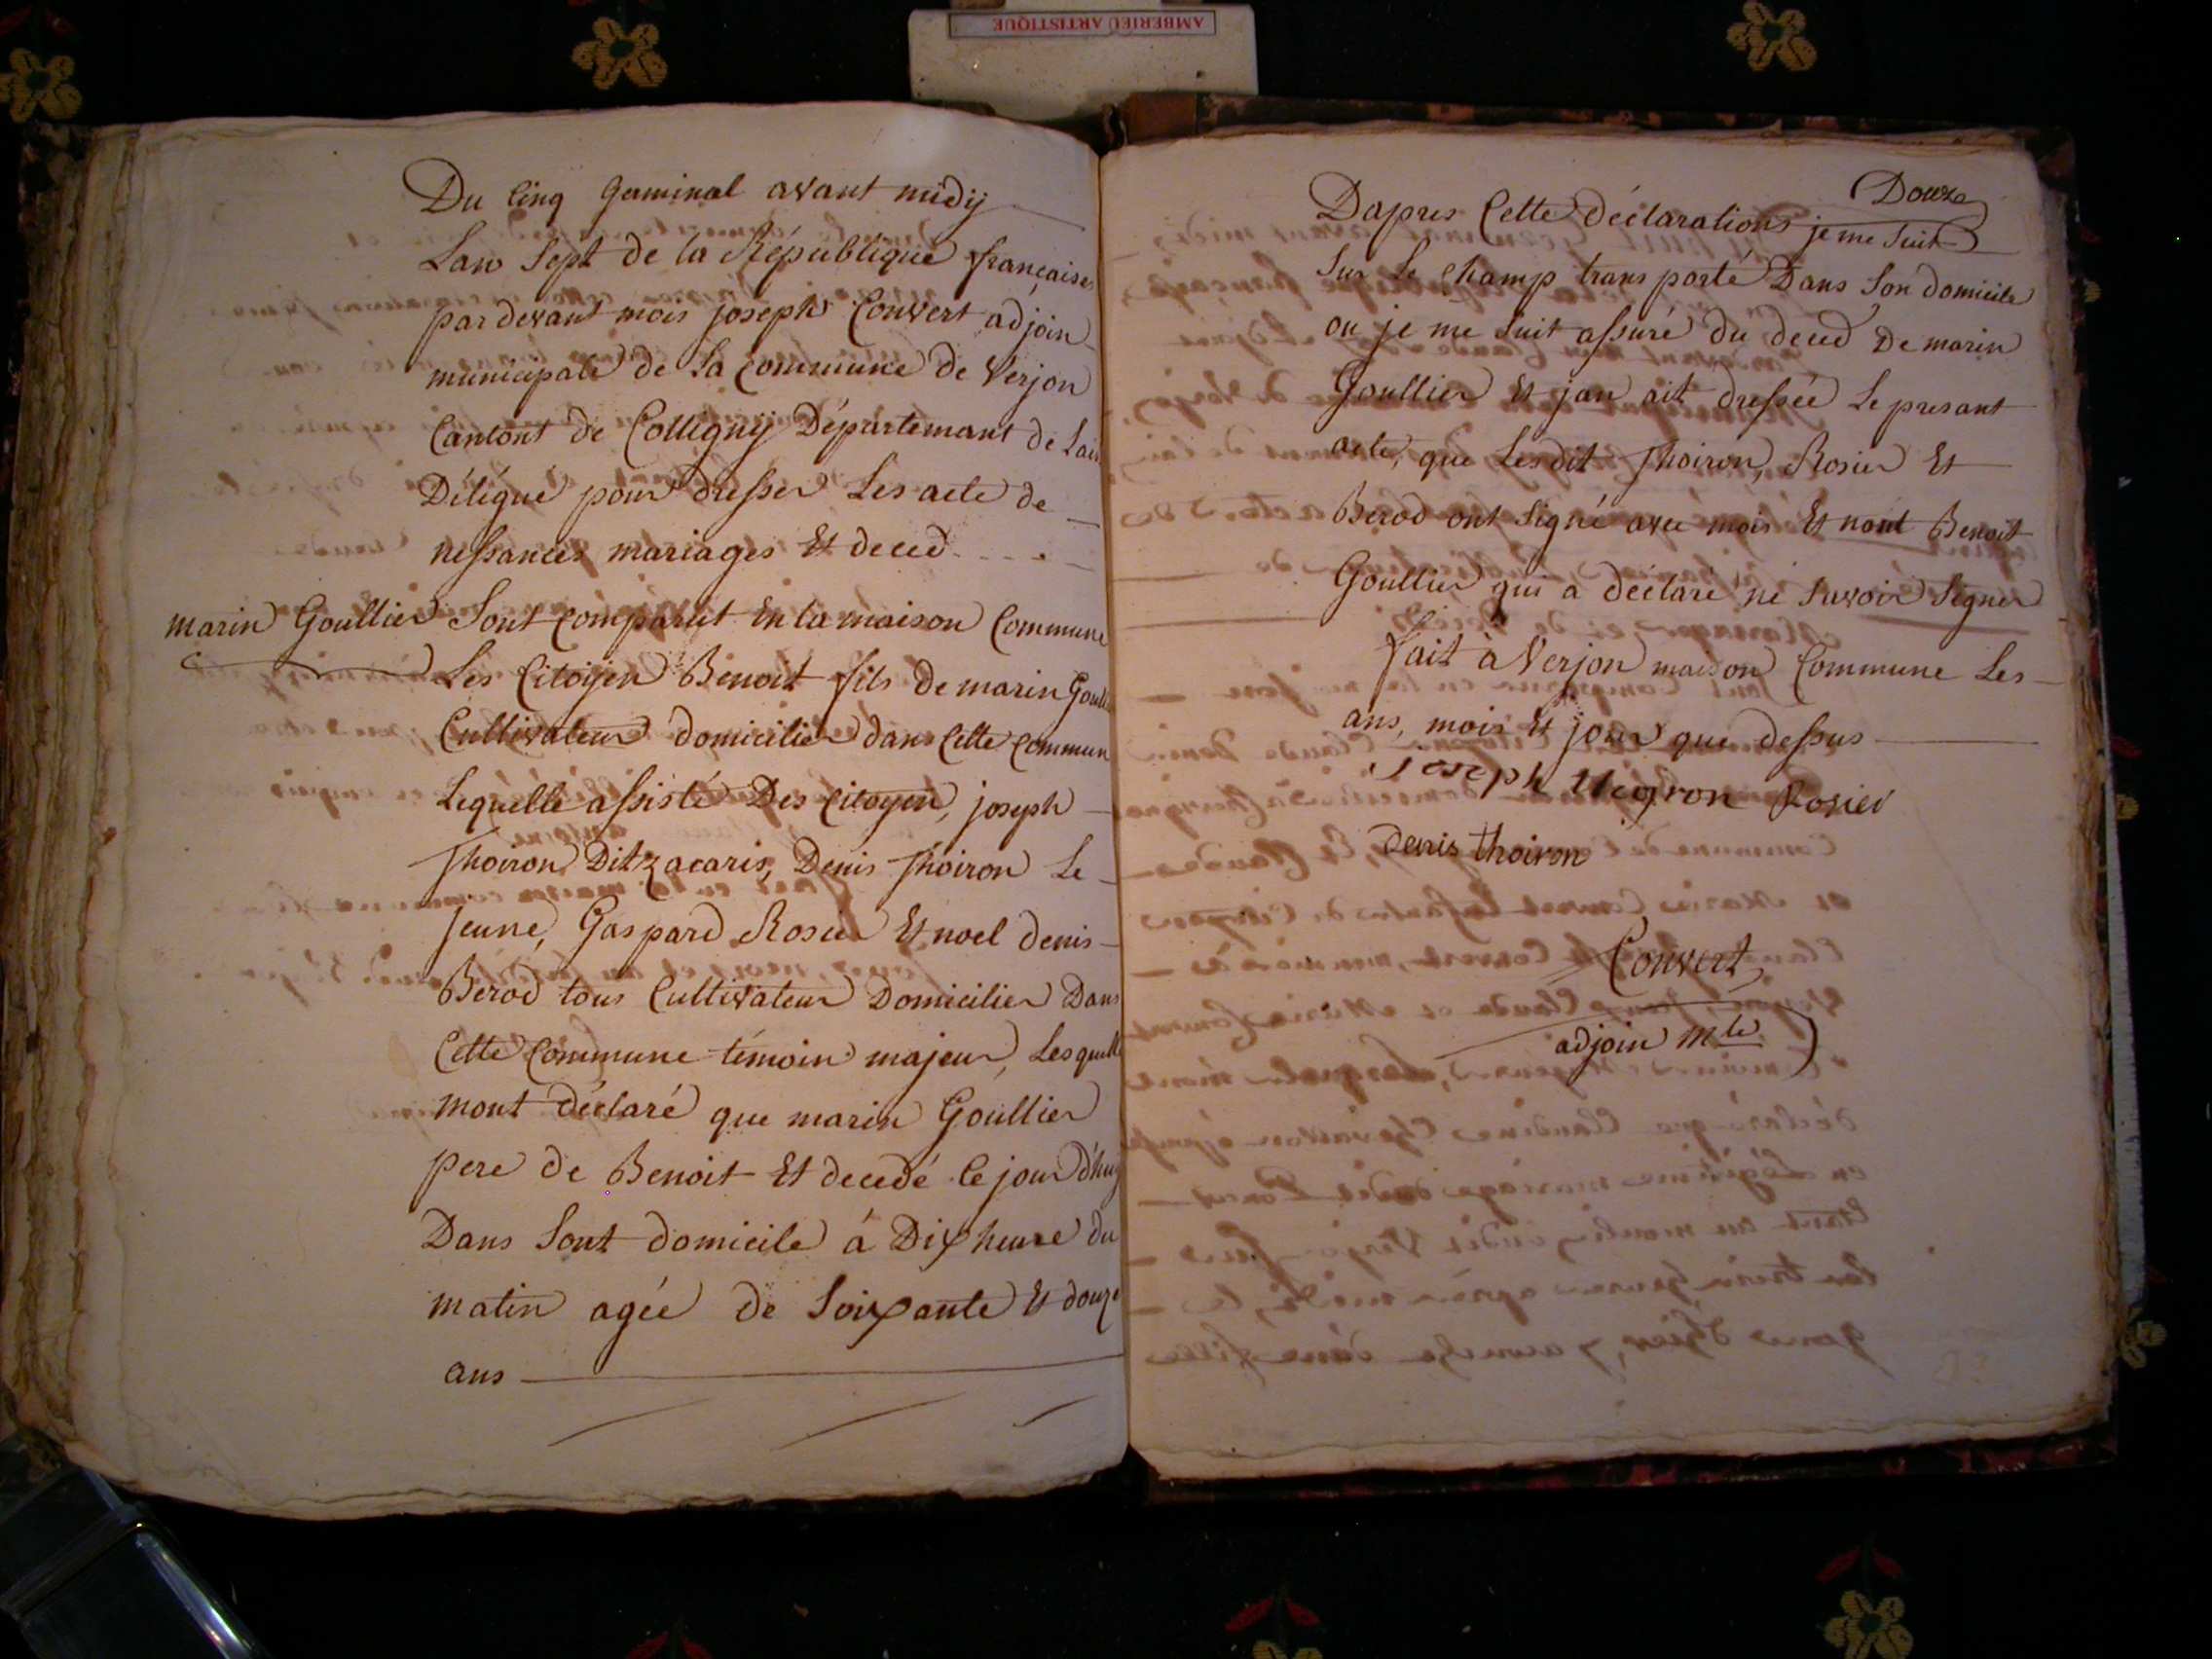 AMBERIEU ARTISTIQUE
Du Cinq Germinal avant midÿ
Lan Sept de la République françaises
par devant mois joseph Convert adjoin
municipale de La Commune de Verjon
Cantont de Collignÿ Départemant de Lain
Délégué pour dresser Les acte de
nessances mariages Et deced
marin Goullier Sont Comparut En la maison Commune
Les Citoÿen Benoit fils de marin Goulli
Cultivateur domicilier dans Cette Commun
Lequelle assisté Des Citoyen, joseph
Thoiron Dit Zacaris, Denis Thoiron Le
Jeune, Gaspard Rosier Et noel denis
Berod tous Cultivateur Domicilier Dans
Cette Commune témoin majeur, Lesquelle
mont déclaré que marin Goullier
pere de Benoit Et decedé Ce jour d'huÿ
Dans Sont domicile à Dix heure du
matin agée de Soixante Et douze
ans
Douze
Dapres Cette déclarations je me Suit
Sur Le Champ trans porté Dans Son domicile
ou je me Suit assuré du deced De marin
Goullier Et jan ait dressée Le presant
acte, que Lesdit Thoiron, Rosier Et
Berod ont Signé avec mois Et nont Benoit
Goullier qui a déclaré ne Savoir Signer
fait à Verjon maison Commune Les
ans, mois Et jour que dessus
Joseph Rosier
denis thoiron
Convert
adjoin mle